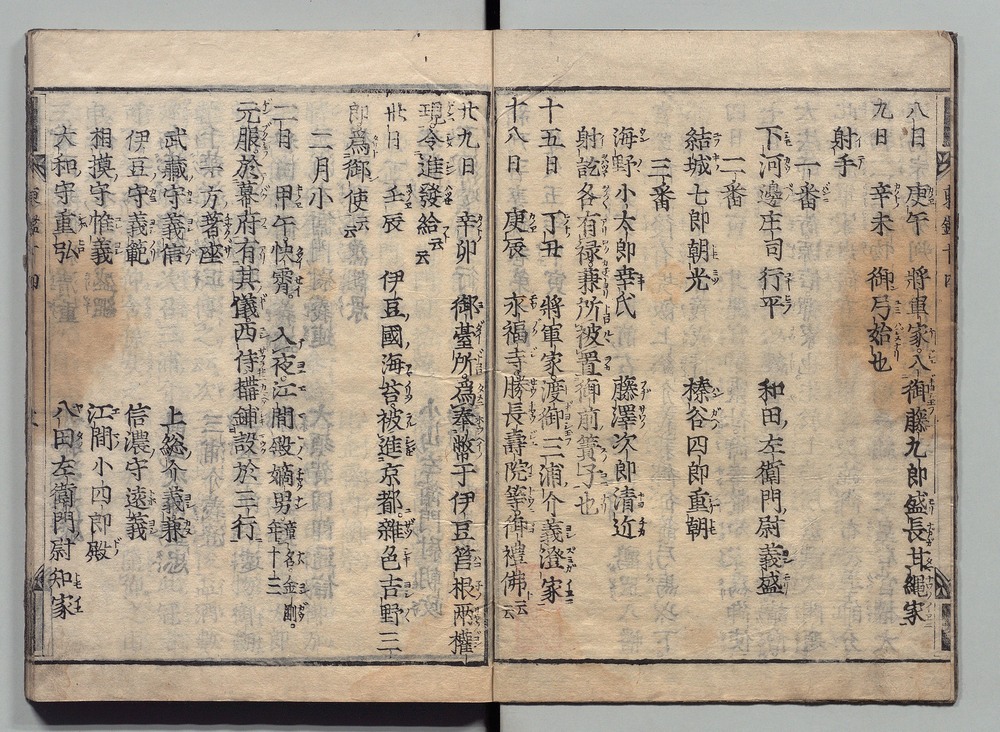 八日 庚午 將軍家入御藤九郎盛長甘繩家
九日 辛未 御弓始也
射手
一番
下河邊庄司行平 和田左衞門尉義盛
二番
結城七郎朝光 榛谷四郎重朝
三番
海野小太郎幸氏 藤澤次郎清近
射訖各有禄兼所被置御前簀子也
十五日 丁丑 將軍家渡御三浦介義澄家
十八日 庚辰 永福寺勝長壽院等御禮佛云
廿九日 辛卯 御臺所爲奉幣于伊豆筥根兩權
現令進發給云云
卅日 壬辰 伊豆國海苔被進京都雜色吉野三
郎爲御使云云
二月小
二日 甲午快霽入夜江間殿嫡男童名金剛年十三
元服於幕府有其儀西侍搆鋪設於三行
一方著座
武藏守義信 上総介義兼
伊豆守義範 信濃守遠義
相摸守惟義 江間小四郎殿
大和守重弘 八田左衞門尉知家
東鑑十四